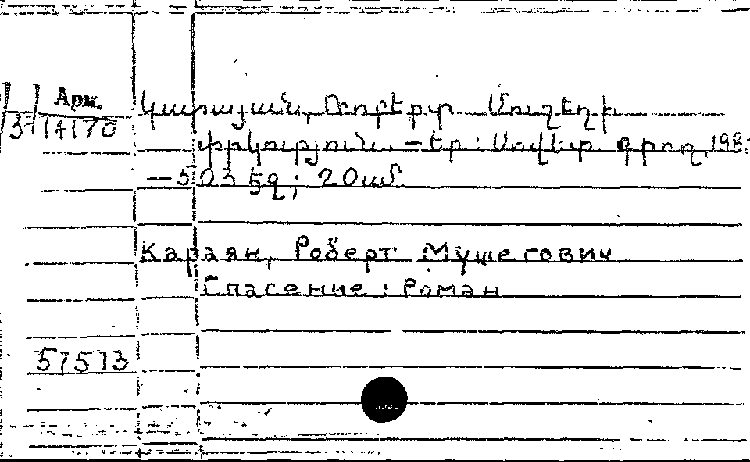 Арм.
3-14170
Կարայան, Ռոբերտ Մուշեղի
Փրկություն. – Եր.: Սովետ. գրող, 198
– 503 էջ; 20 սմ.
Караян, Роберт Мушегович
Спасение : Роман
57573